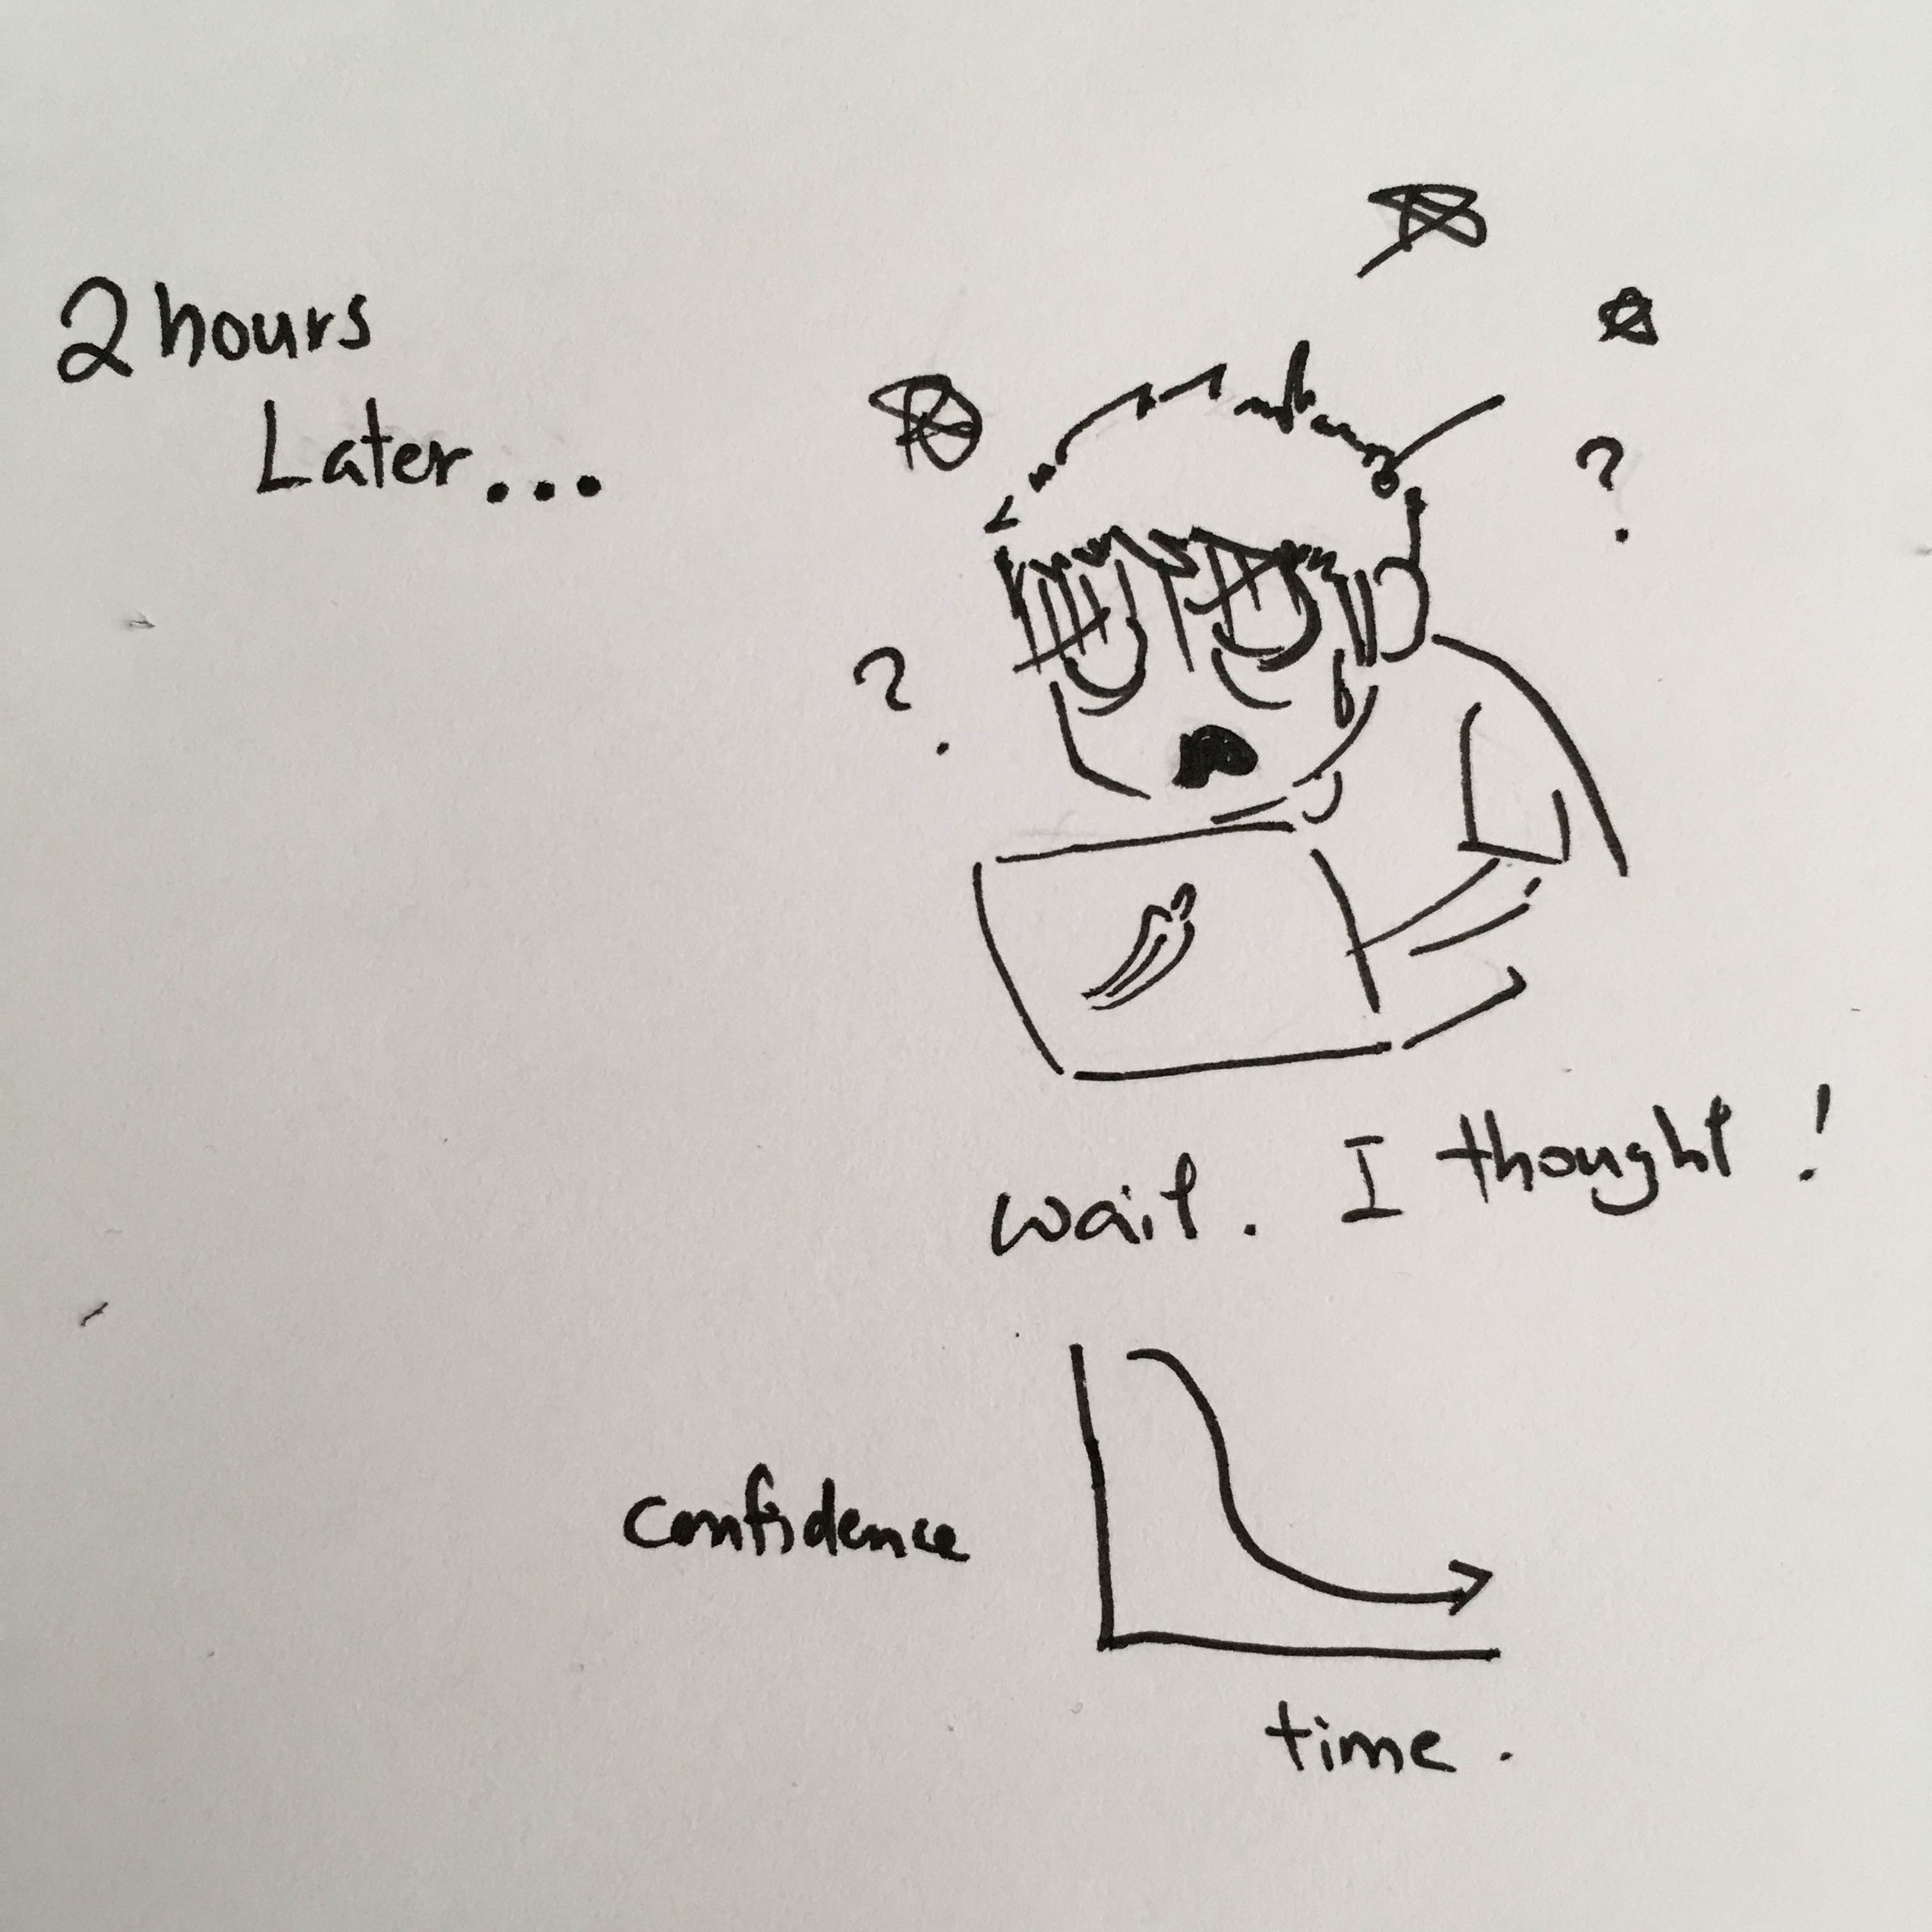 2 hours
Later...
?
?
wait. I thought!
confidence
time.